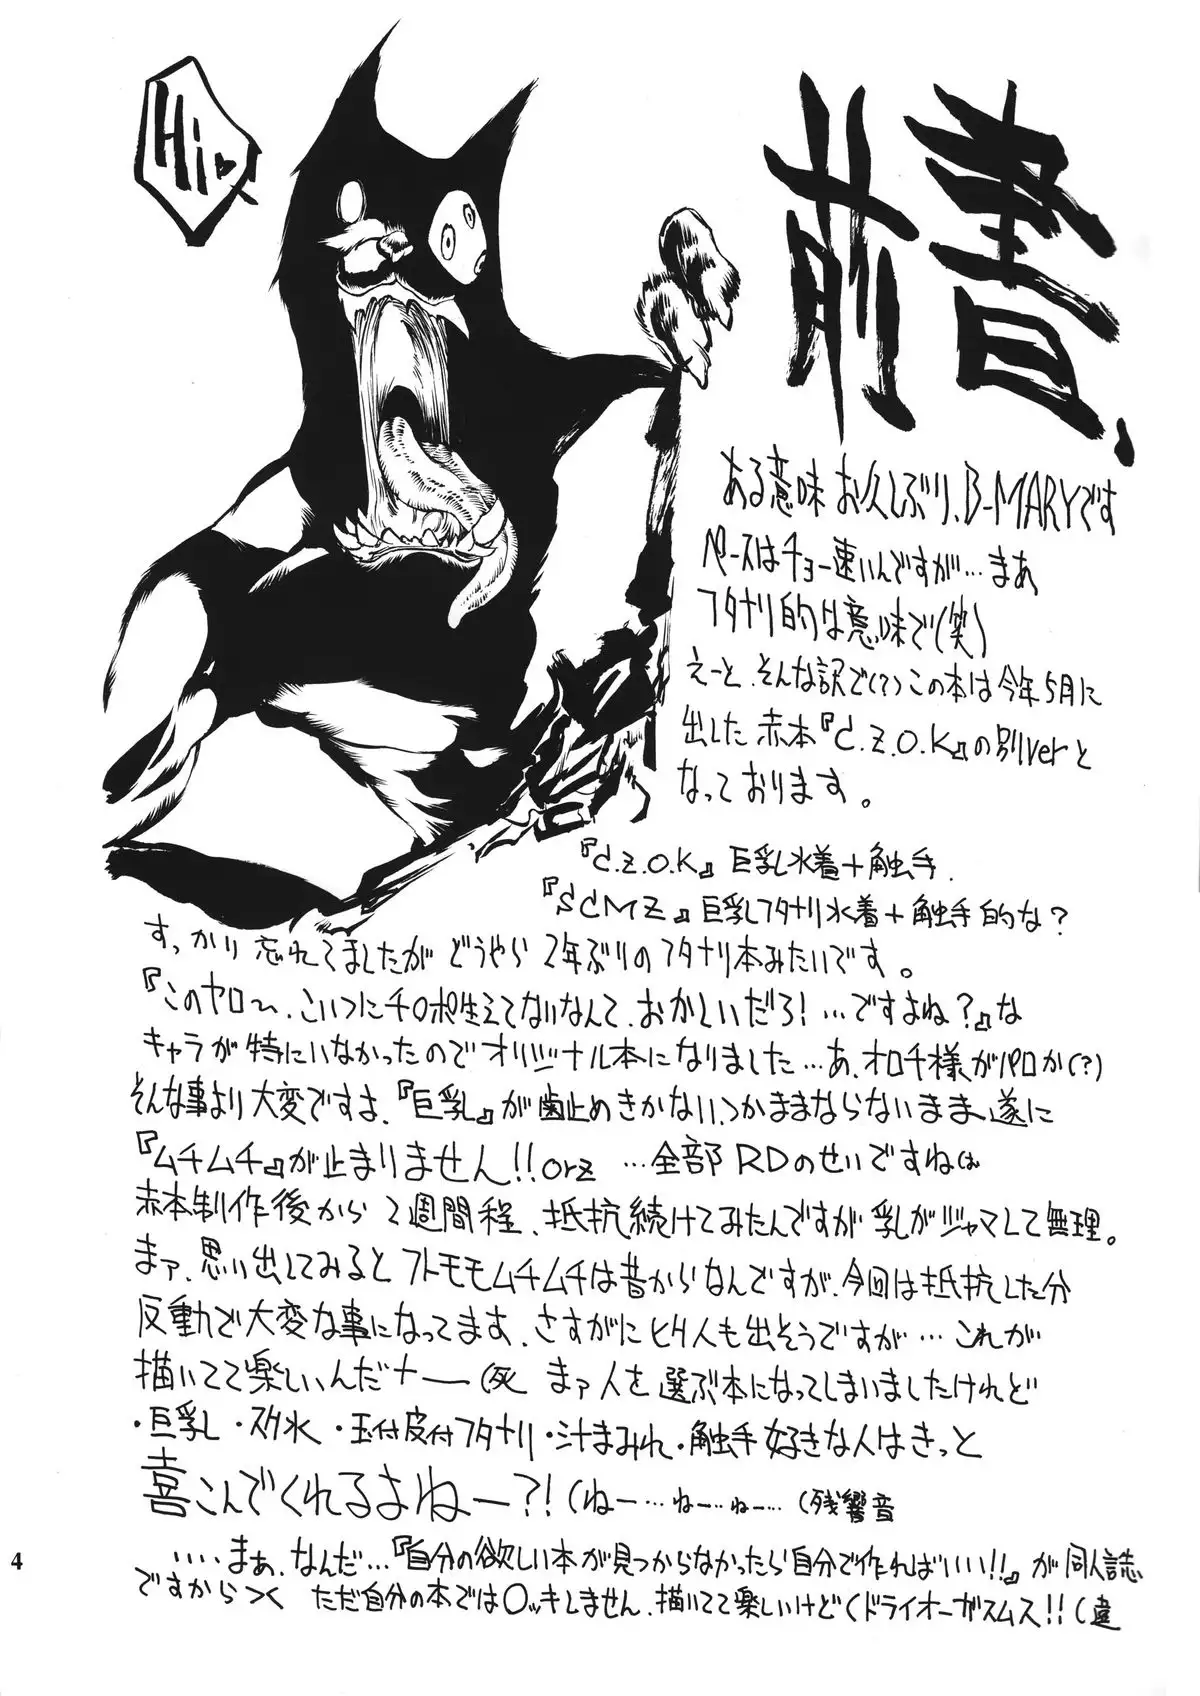 Hi♥
前書、
ある意味お久しぶり、B-MARYです
ペースはチョー速いんですが…まあ
フタナリ的な意味で(笑)
えーと、そんな訳で(?)この本は今年5月に
出した赤本『C.Z.O.K』の別verと
なっております。
『C.Z.O.K』巨乳水着+触手.
『SCMZ』巨乳フタナリ水着+触手的な?
すっかり忘れてましたがどうやら2年ぶりのフタナリ本みたいです。
『このヤロ〜、こいつにチ○ポ生えてないなんて、おかしいだろ!…ですよね?』な
キャラが特にいなかったのでオリジナル本になりました…あ、オロチ様がパロか(?)
そんな事より大変ですよ、『巨乳』が歯止めきかないつかままならないまま遂に
『ムチムチ』が止まりません!!orz …全部RDのせいですねは
赤本制作後から2週間程、抵抗続けてみたんですが乳がジャマして無理。
まァ、思い出してみるとフトモモムチムチは昔からなんですが、今回は抵抗した分
反動で大変な事になってます、さすがにヒク人も出そうですが…これが
描いてて楽しいんだナー(死 まァ人を選ぶ本になってしまいましたけれど
・巨乳・スク水・玉付皮付フタナリ・汁まみれ・触手好きな人はきっと
喜こんでくれるよねー?!(ねー…ねー…ねー…(残響音
‥‥まぁ、なんだ…『自分の欲しい本が見つからなかったら自分で作ればいい!!』が同人誌
ですから ただ自分の本では○ッキしません、描いてて楽しいけど(ドライオーガスムス!!(違
4